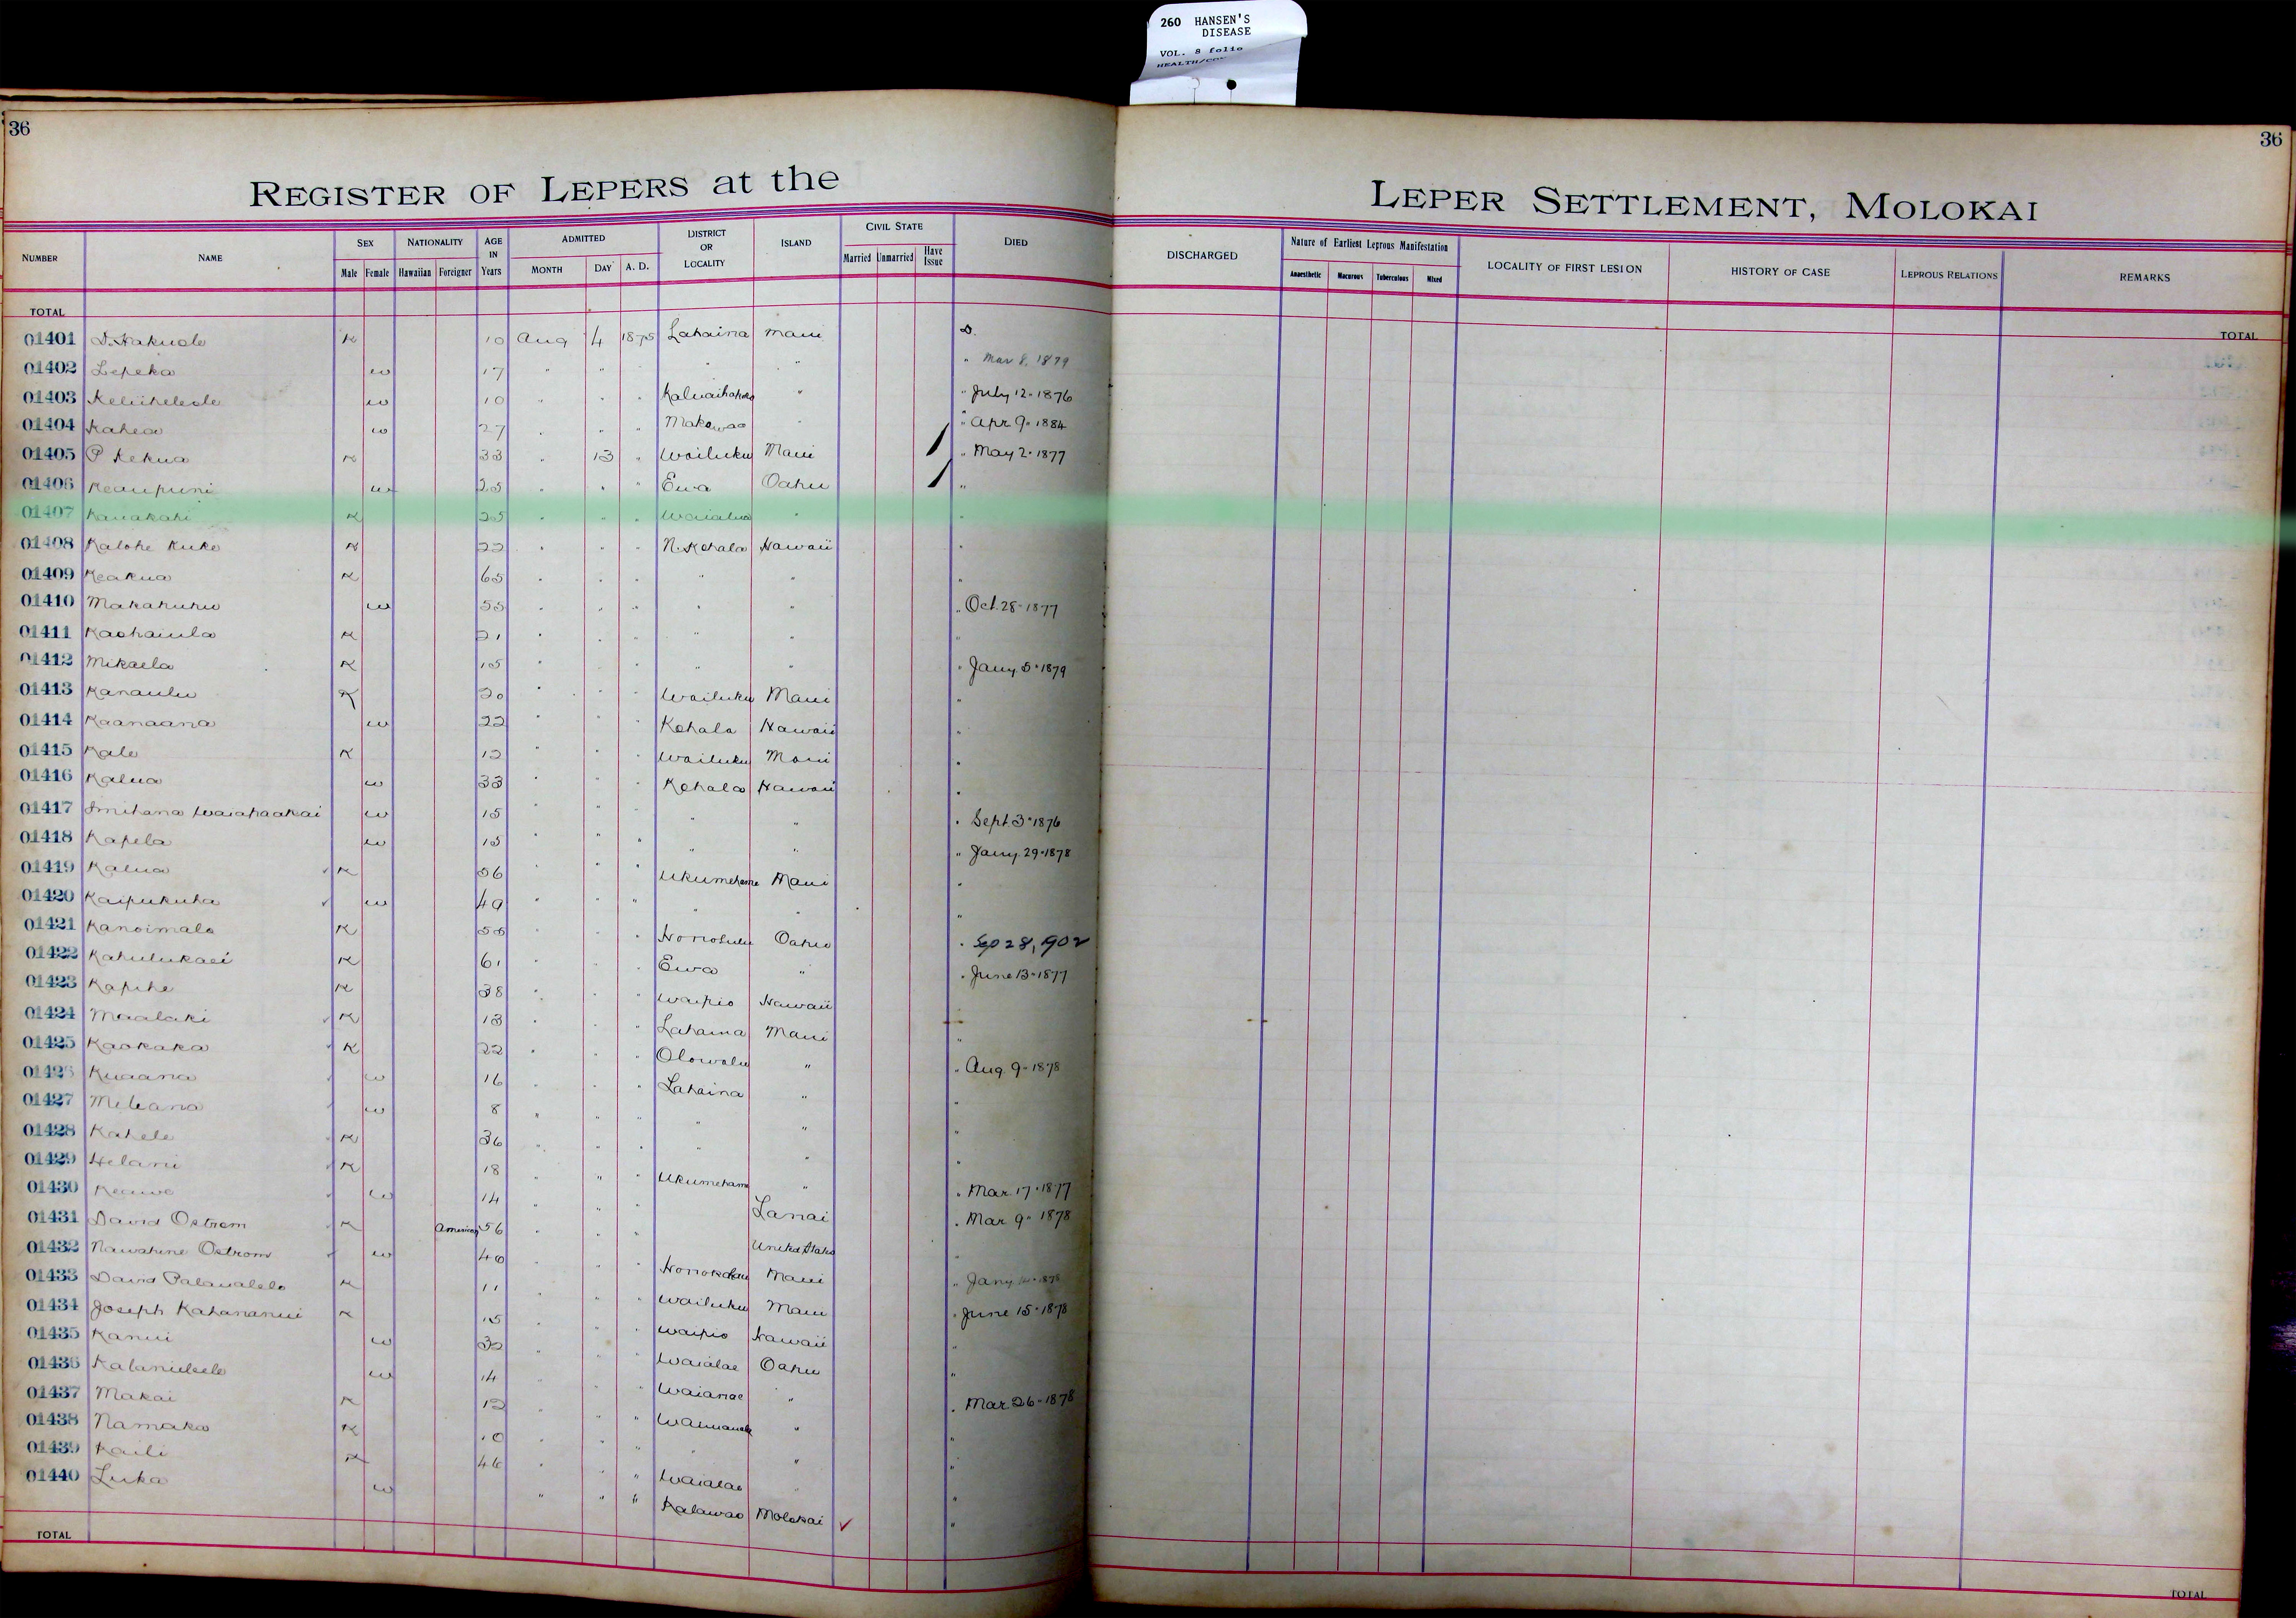 260 HANSEN'S
DISEASE
VOL. 8 folio
36
36
REGISTER OF LEPERS at the
LEPER SETTLEMENT, MOLOKAI
NUMBER NAME SEX NATIONALITY AGE IN Years ADMITTED DISTRICT OR LOCALITY ISLAND CIVIL STATE DIED
Male Female Hawaiian Foreigner MONTH DAY A. D. Married Unmarried Have Issue
DISCHARGED Nature of Earliest Leprous Manifestation LOCALITY OF FIRST LESION HISTORY OF CASE LEPROUS RELATIONS REMARKS
Anaesthetic Macurous Tuberculous Mixed
TOTAL
TOTAL
01401 K 10 Aug 4 1875 Lahaina Maui D.
01402 Lepeka w 17 " " " " " Mar 8, 1879
01403 w 10 " " " " " July 12-1876
01404 Kahea w 27 " " " Makawao " " Apr 9-1884
01405 P Kekua K 33 " 13 " Wailuku Maui " May 2-1877
01406 Keaupuni w 25 " " " Ewa Oahu "
01407 Kanakahi K 25 " " " Waialua " "
01408 Kalohe Kuke K 22 " " " N. Kohala Hawaii "
01409 Keakua K 65 " " " " " "
01410 Makahuhu w 55 " " " " " " Oct. 28-1877
01411 Kaohaiula K 21 " " " " " "
01412 Mikaela K 15 " " " " " " Jany 5-1879
01413 Kanaulu K 20 " " " Wailuku Maui "
01414 Kaanaana w 22 " " " Kohala Hawaii "
01415 Kale K 12 " " " Wailuku Maui "
01416 Kalua w 33 " " " Kohala Hawaii "
01417 w 15 " " " " " " Sept. 3-1876
01418 Kapela w 15 " " " " " " Jany. 29-1878
01419 Kalua K 56 " " " Ukumehame Maui "
01420 Kaipukuha w 49 " " " " " "
01421 Kanoimalo K 55 " " " Honolulu Oahu " Sep 28, 1902
01422 Kahulukaei K 61 " " " Ewa " " June 13-1877
01423 Kapihe K 38 " " " Waipio Hawaii
01424 Maalaki K 13 " " " Lahaina Maui "
01425 Kaokaka K 22 " " " Olowalu " " Aug. 9-1878
01426 Kuaana w 16 " " " Lahaina " "
01427 Meleana w 8 " " " " " "
01428 Kahele K 36 " " " " " "
01429 Helani K 18 " " " Ukumehame " " Mar. 17-1877
01430 Keawe w 14 " " " Lanai " Mar. 9-1878
01431 David Ostrom K American 56 " " " United States "
01432 Nawahine Ostrom w 40 " " " Honokohau Maui " Jany
01433 David Palaualelo K 11 " " " Wailuku Maui " June 15-1878
01434 Joseph Kahananui K 15 " " " Waipio Hawaii "
01435 Kanui w 32 " " " Waialae Oahu "
01436 w 14 " " " Waianae " " Mar. 26-1878
01437 Makai K 12 " " " " "
01438 Namaka K 10 " " " " " "
01439 Kaili K 46 " " " Waialae " "
01440 Luka w " " " Kalawao Molokai "
TOTAL
TOTAL